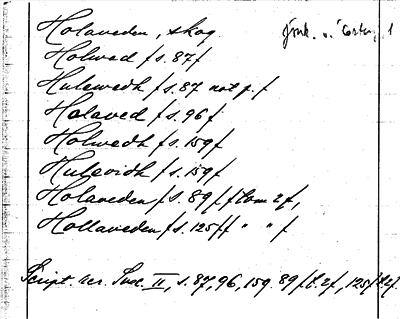 Holaveden, skog.
Jönk. o. Österg. 1
Holwed (s. 87)
Hulewedh (s. 87 not p. )
Holaved (s. 96)
Holwedh (s. 159)
Hulevidh (s. 159)
Holaveden (s. 89) (tom 2),
Hollaveden (s. 125) ( " " )
Script. rer. Suec. II, s. 87, 96, 159. 89 (t. 2), 125 (t. 2).